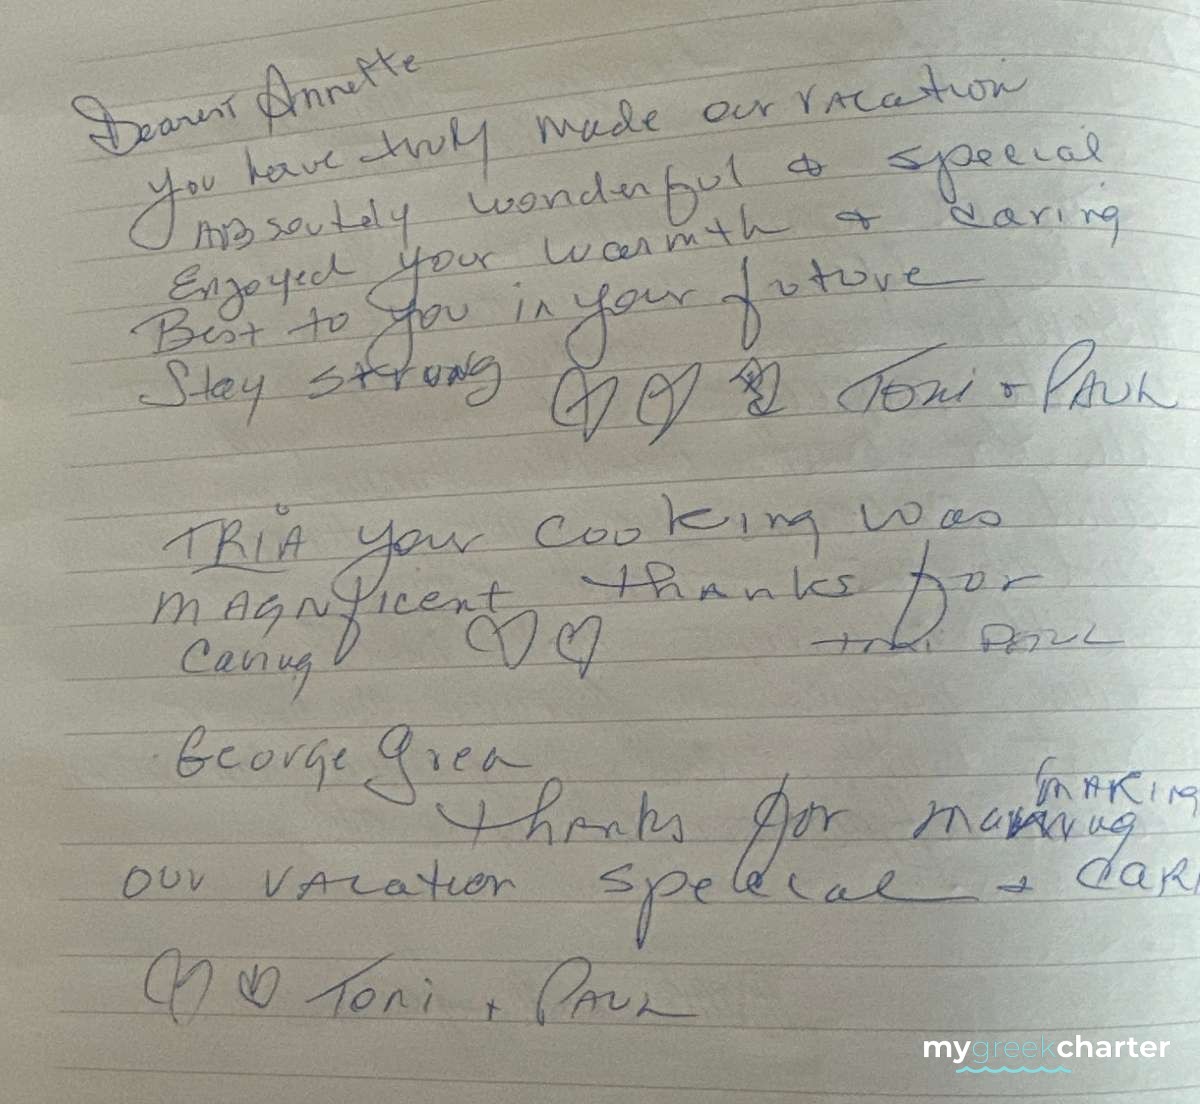 Dearest Annette
you have truly made our vacation
ABsoutely wonderful & special
Enjoyed your warmth + caring
Best to you in your future
Stay strong Toni + PAUL
TRIA your cooking was
MAGNificent thanks for
Caring Toni PAUL
George
thanks for MAKING
our vacation special + CAR
Toni + PAUL
mygreekcharter